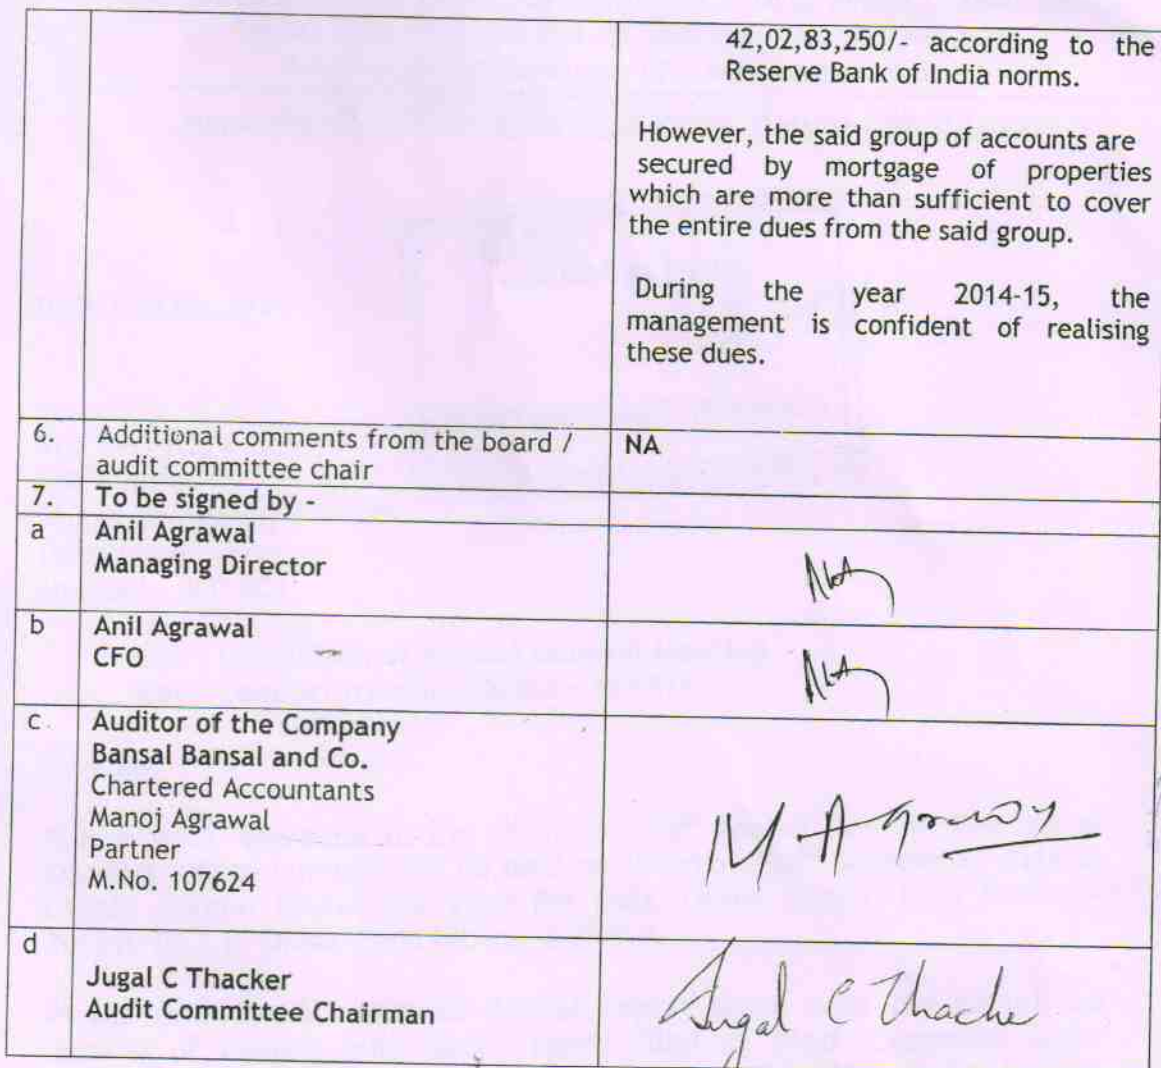 42,02,83,250/- according to the
Reserve Bank of India norms.
However, the said group of accounts are
secured by mortgage of properties
which are more than sufficient to cover
the entire dues from the said group.
During the year 2014-15, the
management is confident of realising
these dues.
6. Additional comments from the board / NA
audit committee chair
7. To be signed by -
a Anil Agrawal
Managing Director
b Anil Agrawal
CFO
c. Auditor of the Company
Bansal Bansal and Co.
Chartered Accountants
Manoj Agrawal
Partner
M.No. 107624
d
Jugal C Thacker
Audit Committee Chairman
Jugal C Thacker